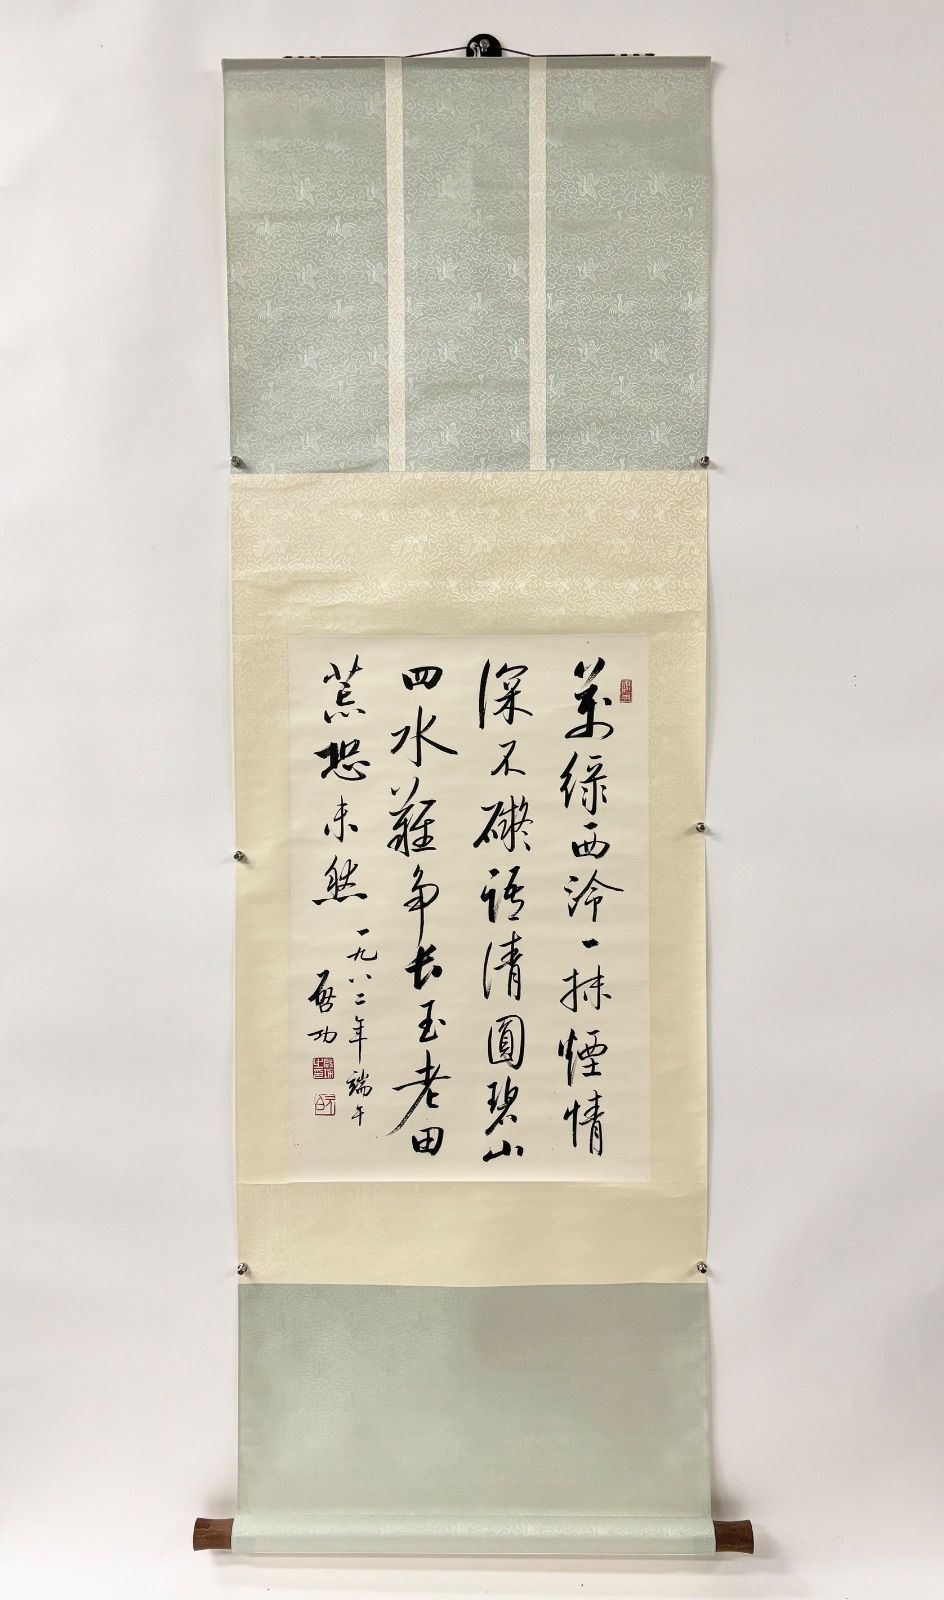 萬綠西泠一抹煙情
深不礙語清圓碧山
四水難争长玉老田
荒恐未然
一九八二年端午
启功